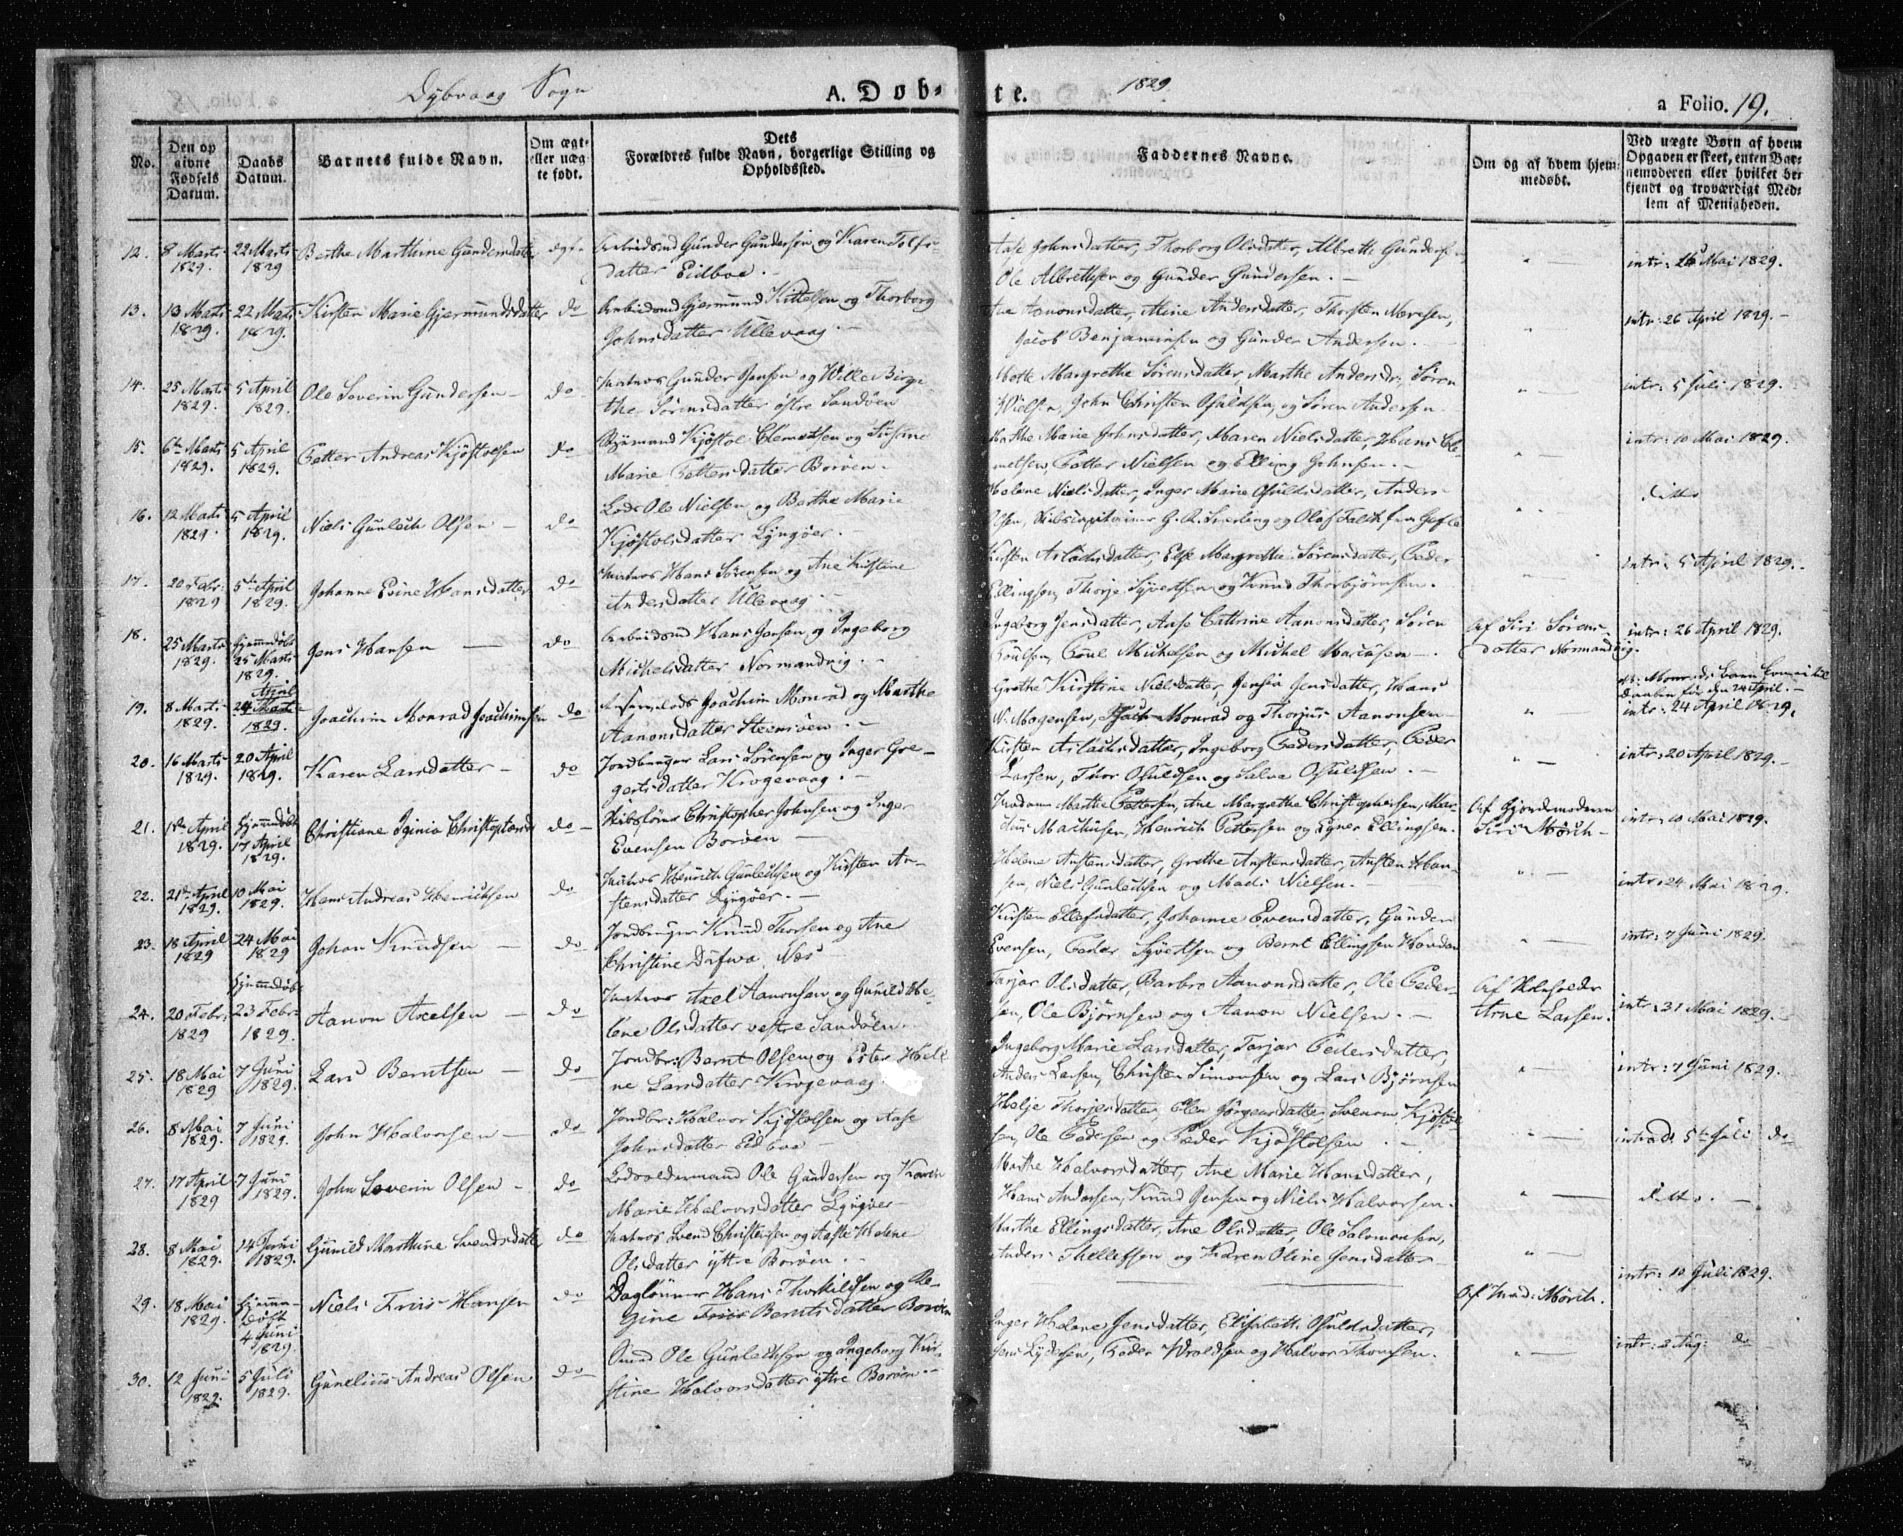 Dybvaag Sogn
A. Døb-
te.
1829
a Folio. 19.
No.
Den op
givne
Fødsels
Datum.
Daabs
Datum.
Barnets fulde Navn.
Om ægt-
eller uæg
te født.
Dets
Forældres fulde Navn, borgerlige Stilling og
Opholdssted.
Faddernes Navne.
Om og af hvem hjem-
medøbt.
Ved uægte Børn af hvem
Opgaven er skeet, enten Bar-
nemoderen eller hvilket be-
kjendt og troværdigt Med-
lem af Menigheden.
12. 8 Marts 1829. 22 Marts 1829 Berthe Marthine Gundersdatter ægte Arbeidsmd Gunder Gundersen og Karen Tolfs-
datter Eidboe.
Aase Johnsdatter, Thorborg Olsdatter, Albreth Gundersen
Ole Albrethsen og Gunder Gundersen.
intr: 26 Mai 1829.
13. 13 Marts 1829. 22 Marts 1829. Kirsten Marie Gjermundsdatter do Arbeidsmd Gjermund Kittelsen og Thorborg
Johnsdatter Ullevaag.
Ane Aanonsdatter, Aline Andersdatter, Thorsten
Jacob Benjaminsen og Gunder Andersen.
intr: 26 April 1829.
14. 25 Marts 1829. 5 April 1829. Ole Severin Gundersen do Matros Gunder Jensen og Wille Birgi-
the Sørensdatter østre Sandøen
Mette Margrethe Sørensdatter, Marthe Andersdr, Søren
Nielsen, John Christen Osuldsen, og Søren Andersen.
intr: 5 Juli 1829.
15. 6te Marts 1829. 5 April 1829. Petter Andreas Kjøstvelsen do Kjøstvel Clemetsen og Susane
Marie Pettersdatter Borøen.
Marthe Marie Johnsdatter, Maren Nielsdatter, Hans Cle-
metsen, Petter Nielsen og Elling Johnsen.
intr: 10 Mai 1829.
16. 12 Marts 1829. 5 April 1829. Niels Gunleck Olsen do Lods Ole Nielsen og Berthe Marie
Kjøstolsdatter Lyngøer.
Helene Nielsdatter, Inger Marie Osuldsdatter, Anders
Olsen, Skibscapitainer G. R. og Olaf Falck fra Gefle
ditto
17. 20 Febr: 1829 5te April 1829. Johanne Evine Hansdatter do Matros Hans Sørensen og Ane Kirstine
Andersdatter Ullevaag.
Kirsten Aslachsdatter, Else Margrethe Sørensdatter, Peder
Ellingsen, Thorje Syvertsen og Knud Thorbjørnsen.
intr: 5 April 1829.
18. 25 Marts 1829. hjemmedøbt 25 Marts 1829. Jens Hansen do Arbeidsmd Hans Jensen og Ingeborg
Michelsdatter Normandvig.
Ingeborg Jensdatter, Aase Cathrine Aanonsdatter, Søren
Poulsen, Poul Michelsen og Michel Madsen
Af Siri Sørens-
datter Normandvig.
intr: 26 April 1829.
19. 8 Marts 1829. 24 April 1829. Joachim Monrad Joachimsen do Joachim Monrad og Marthe
Aanonsdatter Steensøen
Grethe Kirstine Nielsdatter, Jensia Jensdatter, Hans
N. Mogensen, Monrad og Thorjus Aanonsen
Monrads Barn
Daaben før den 24 April.
intr: 24 April 1829.
20. 16 Marts 1829. 20 April 1829. Karen Larsdatter do Jordbruger Lars Sørensen og Inger Gre-
gersdatter Krogevaag.
Kirsten Aslachsdatter, Ingeborg Pedersdatter, Peder
Larsen, Thor Osuldsen og Salve Osuldsen.
intr: 20 April 1829.
21. 1ste April 1829. hjemmedøbt 17 April 1829. Christiane Iginia Christophersd do Skibsfører Christopher Johnsen og Inger
Evensen Borøen
Madame Marthe Pettersen, Ane Margrethe Christophersen, Mar-
cus Marcusen, Henrich Pettersen og Egner Ellingsen.
Af Gjordemoderen
Siri Mørch
intr: 10 Mai 1829.
22. 21de April 1829. 10 Mai 1829. Hans Andreas Henrichsen do Matros Henrich Gunlechsen og Kirsten An-
stensdatter Lyngøer.
Helene Anstensdatter, Grethe Anstensdatter, Ansten Han-
sen, Niels Gunlechsen og Mads Nielsen.
intr: 24 Mai 1829.
23. 18 April 1829 24 Mai 1829 Johan Knudsen do Jordbruger Knud Thorsen og Ane
Christine Næs
Kirsten Ellefsdatter, Johanne Evensdatter, Gunder
Evensen, Peder Syvertsen og Bernt Ellingsen
intr: 7 Juni 1829.
24. 20 Febr: 1829 hjemmedøbt 23 Febr: 1829. Aanon Axelsen do Matros Axel Aanonsen og Gunild He-
lene Olsdatter vestre Sandøen.
Tarjer Olsdatter, Barbro Aanonsdatter, Ole Peder-
sen, Ole Bjørnsen og Aanon Nielsen.
Arne Larsen.
intr: 31 Mai 1829.
25. 18 Mai 1829 7 Juni 1829. Lars Berntsen do Jordbr: Bernt Olsen og Ester Hele-
ne Larsdatter Krogevaag
Ingeborg Marie Larsdatter, Tarjer Pedersdatter,
Anders Larsen, Christen Simonsen og Lars Bjørnsen
intr: 7 Juni 1829.
26. 8 Mai 1829. 7 Juni 1829. John Halvorsen do Jordbr: Halvor Kjøstolsen og Aase
Johnsdatter Eidboe
Helje Thorjersdatter, Elen Jørgensdatter, Kjøstol-
sen, Ole Pedersen og Peder Kjøstolsen.
introd: 5te Juli do
27. 17 April 1829 7 Juni 1829. John Severin Olsen do Lodsoldermand Ole Gundersen og Karen
Marie Halvorsdatter Lyngøer
Marthe Halvorsdatter, Ane Marie Hansdatter,
Hans Andersen, Knud Jensen og Niels Halvorsen.
ditto.
28. 8 Mai 1829. 14 Juni 1829. Gunild Marthine Svendsdatter do Matros Svend Christensen og Aase Helene
Olsdatter yttre Borøen.
Marthe Ellingsdatter, Ane Olsdatter, Ole Salomonsen,
Anders Thellefsen og Karen Oline Jensdatter
intr: 10 Juli 1829.
29. 18 Mai 1829. hjemme-døbt 4 Juni 1829. Niels Friis Hansen do Daglønner Hans Thorkildsen og Re-
gine Berntsdatter Borøen
Af Mad: Mørch.
30. 12 Juni 1829. 5 Juli 1829. Gunelius Andreas Olsen do Ole Gunlechsen og Ingeborg Kir-
stine Halvorsdatter yttre Borøen
Inger Helene Jensdatter, Elisabeth Osuldsdatter,
Jens Lydersen, Peder Wroldsen og Halvor Thomsen.
intr: 2 Aug: do